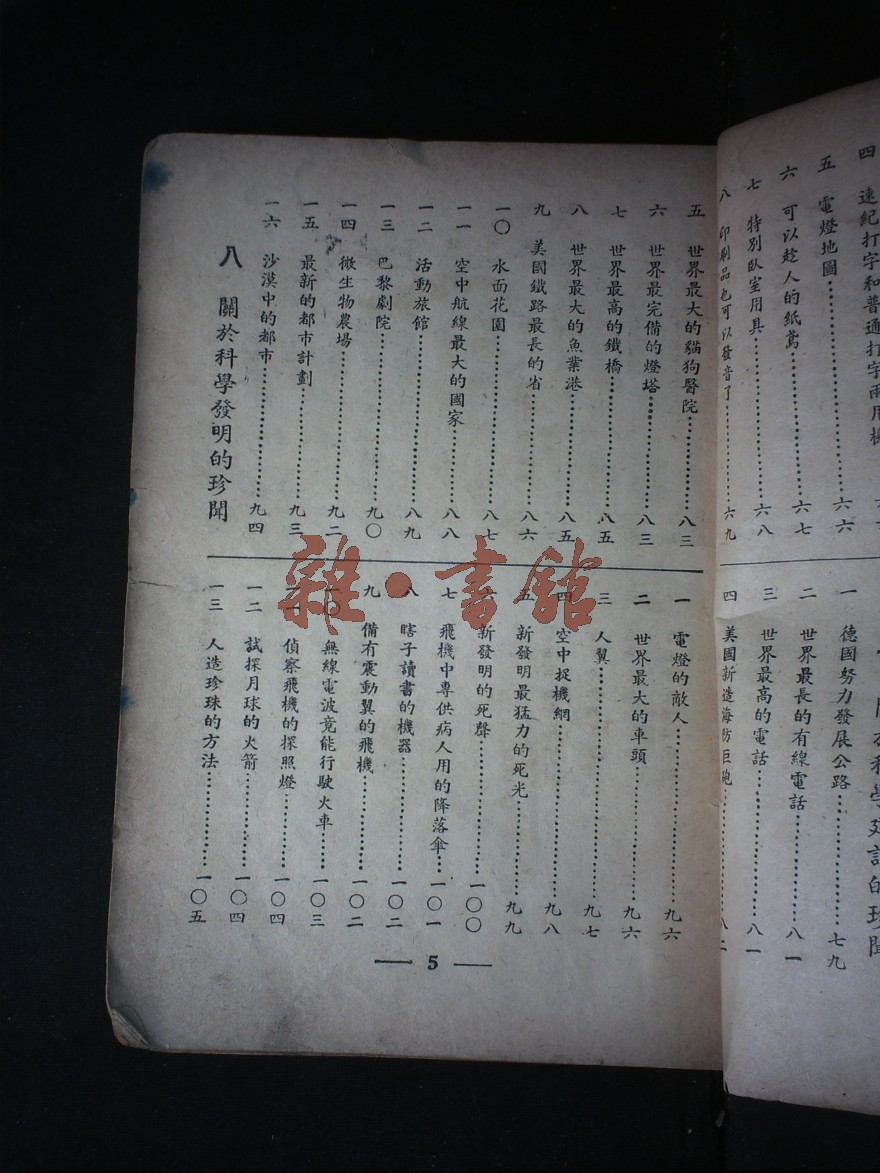 四 速紀打字和普通打字兩用機
五 電燈地圖⋯⋯六六
六 可以趁人的紙鳶⋯⋯六七
七 特別臥室用具⋯⋯六八
八 印刷品也可以發音了⋯⋯六九
一 德國努力發展公路⋯⋯七九
二 世界最長的有線電話⋯⋯八一
三 世界最高的電話⋯⋯八一
四 美國新造海防巨砲⋯⋯八二
五 世界最大的貓狗醫院⋯⋯八三
六 世界最完備的燈塔⋯⋯八三
七 世界最高的鐵橋⋯⋯八五
八 世界最大的魚業港⋯⋯八五
九 美國鐵路最長的省⋯⋯八六
一〇 水面花園⋯⋯八七
一一 空中航線最大的國家⋯⋯八八
一二 活動旅館⋯⋯八九
一三 巴黎劇院⋯⋯九〇
一四 微生物農場⋯⋯九二
一五 最新的都市計劃⋯⋯九三
一六 沙漠中的都市⋯⋯九四
八 關於科學發明的珍聞
一 電燈的敵人⋯⋯九六
二 世界最大的車頭⋯⋯九六
三 人翼⋯⋯九七
四 空中捉機網⋯⋯九八
五 新發明最猛力的死光⋯⋯九九
六 新發明的死聲⋯⋯一〇〇
七 飛機中專供病人用的降落傘⋯⋯一〇一
八 瞎子讀書的機器⋯⋯一〇二
九 備有震動翼的飛機⋯⋯一〇二
一〇 無線電波竟能行駛火車⋯⋯一〇三
一一 偵察飛機的探照燈⋯⋯一〇四
一二 試探月球的火箭⋯⋯一〇四
一三 人造珍珠的方法⋯⋯一〇五
— 5 —
雜·書館